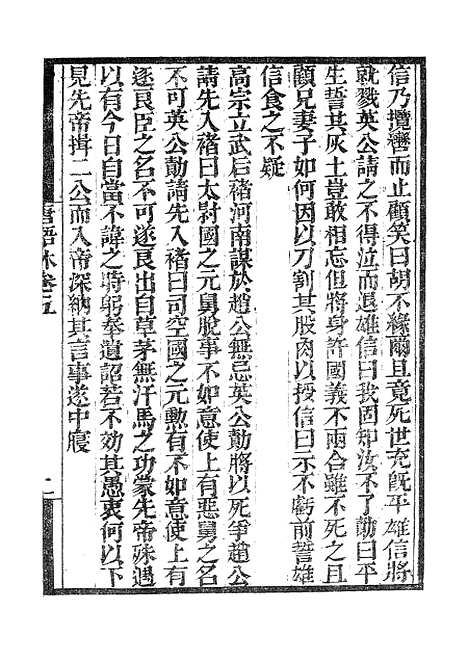 信乃攬轡而止顧笑曰胡不緣爾且竟死世充旣平雄信將
就戮英公請之不得泣而退雄信曰我固知汝不了勣曰平
生誓共灰土豈敢相忘但將身許國義不兩合雖不死之且
顧兄妻子如何因以刀割其股肉以授信曰示不虧前誓雄
信食之不疑
高宗立武后褚河南謀於趙公無忌英公勣將以死爭趙公
請先入褚曰太尉國之元舅脫事不如意使上有惡舅之名
不可英公勣請先入褚曰司空國之元勲有不如意使上有
逐良臣之名不可遂良出自草茅無汗馬之功蒙先帝殊遇
以有今日自當不諱之時躬奉遺詔若不効其愚衷何以下
見先帝揖二公而入帝深納其言事遂中寢
唐語林卷五
二